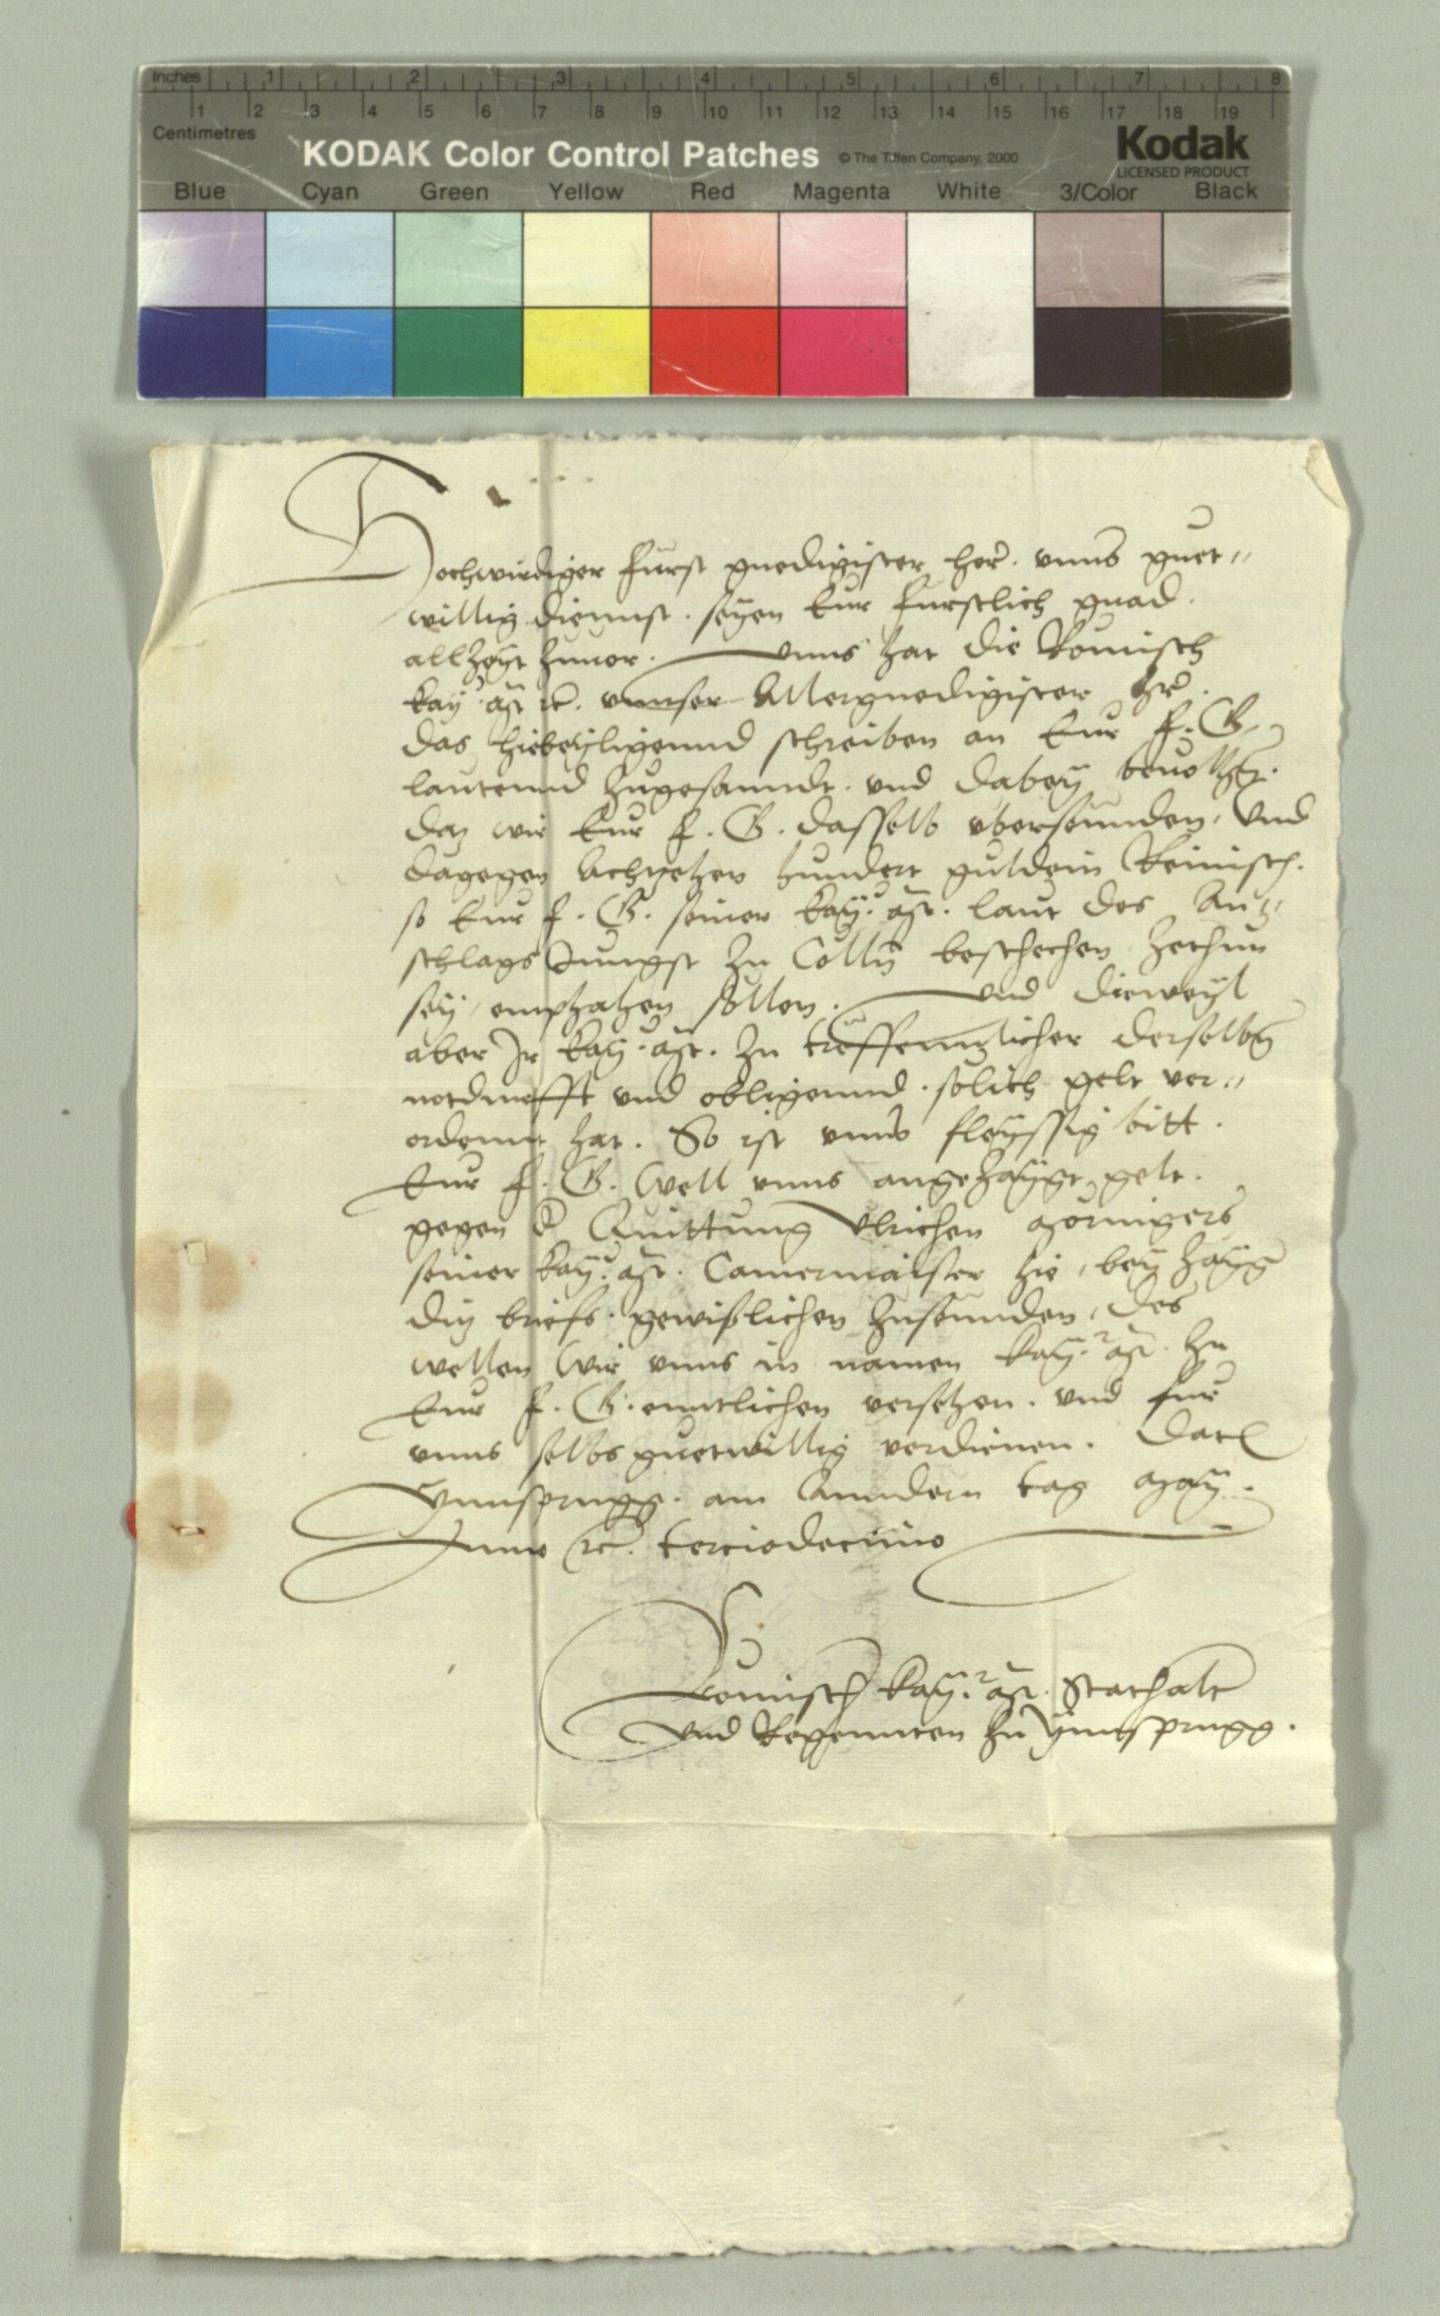 Inches 1 2 3 4 5 6 7 8
1 2 3 4 5 6 7 8 9 10 11 12 13 14 15 16 17 18 19
Centimetres
KODAK Color Control Patches © The Tiffen Company, 2000 Kodak
LICENSED PRODUCT
Blue Cyan Green Yellow Red Magenta White 3/Color Black
Hochwirdiger Fürst gnedigister her. vnns guet〃
willig diennst. seyen Eur furstlich gnad.
allzeyt zuuor. vnns hat die Romisch
kay. Mt. rc. vnnser Allergnedigister hr.
das hiebeyligennd schreiben an Eur F. G.
lautennd zugesanndt. vnd dabey beuolhen.
daz wir Eur F. G. dasselb vbersennden, Vnd
dagegen Achtzehen hundert guldein Reinisch.
so Eur F. G. seiner kay. Mt. laut des An〃
schlags Jungst zu Colln beschechen zethun
sey, emphahen sollen. vnd dieweyl
aber Ir kay. Mt. zu treffennlicher derselben
notdurfft vnd obligennd. solich gelt ver〃
ordennt hat. So ist vnnser fleyssig bitt.
Eur F. G. well vnns angezaygt gelt.
gegen d Quittung Vlrichen Moringers
seiner kay. Mt. Camermaister hie, bey zayger
ditz briefs. gewißlichen zusennden, des
wellen wir vnns in namen kay. Mt. zu
Eur F. G. enntlichen versehen. vnd fur
vnns selbs guetwillig verdienen. Dat
Ynnsprugg. am Anndern tag May.
Anno rc. terciodecimo
Romisch kay. Mt. Stathalter
vnd Regennten zu Ynnsprugg.